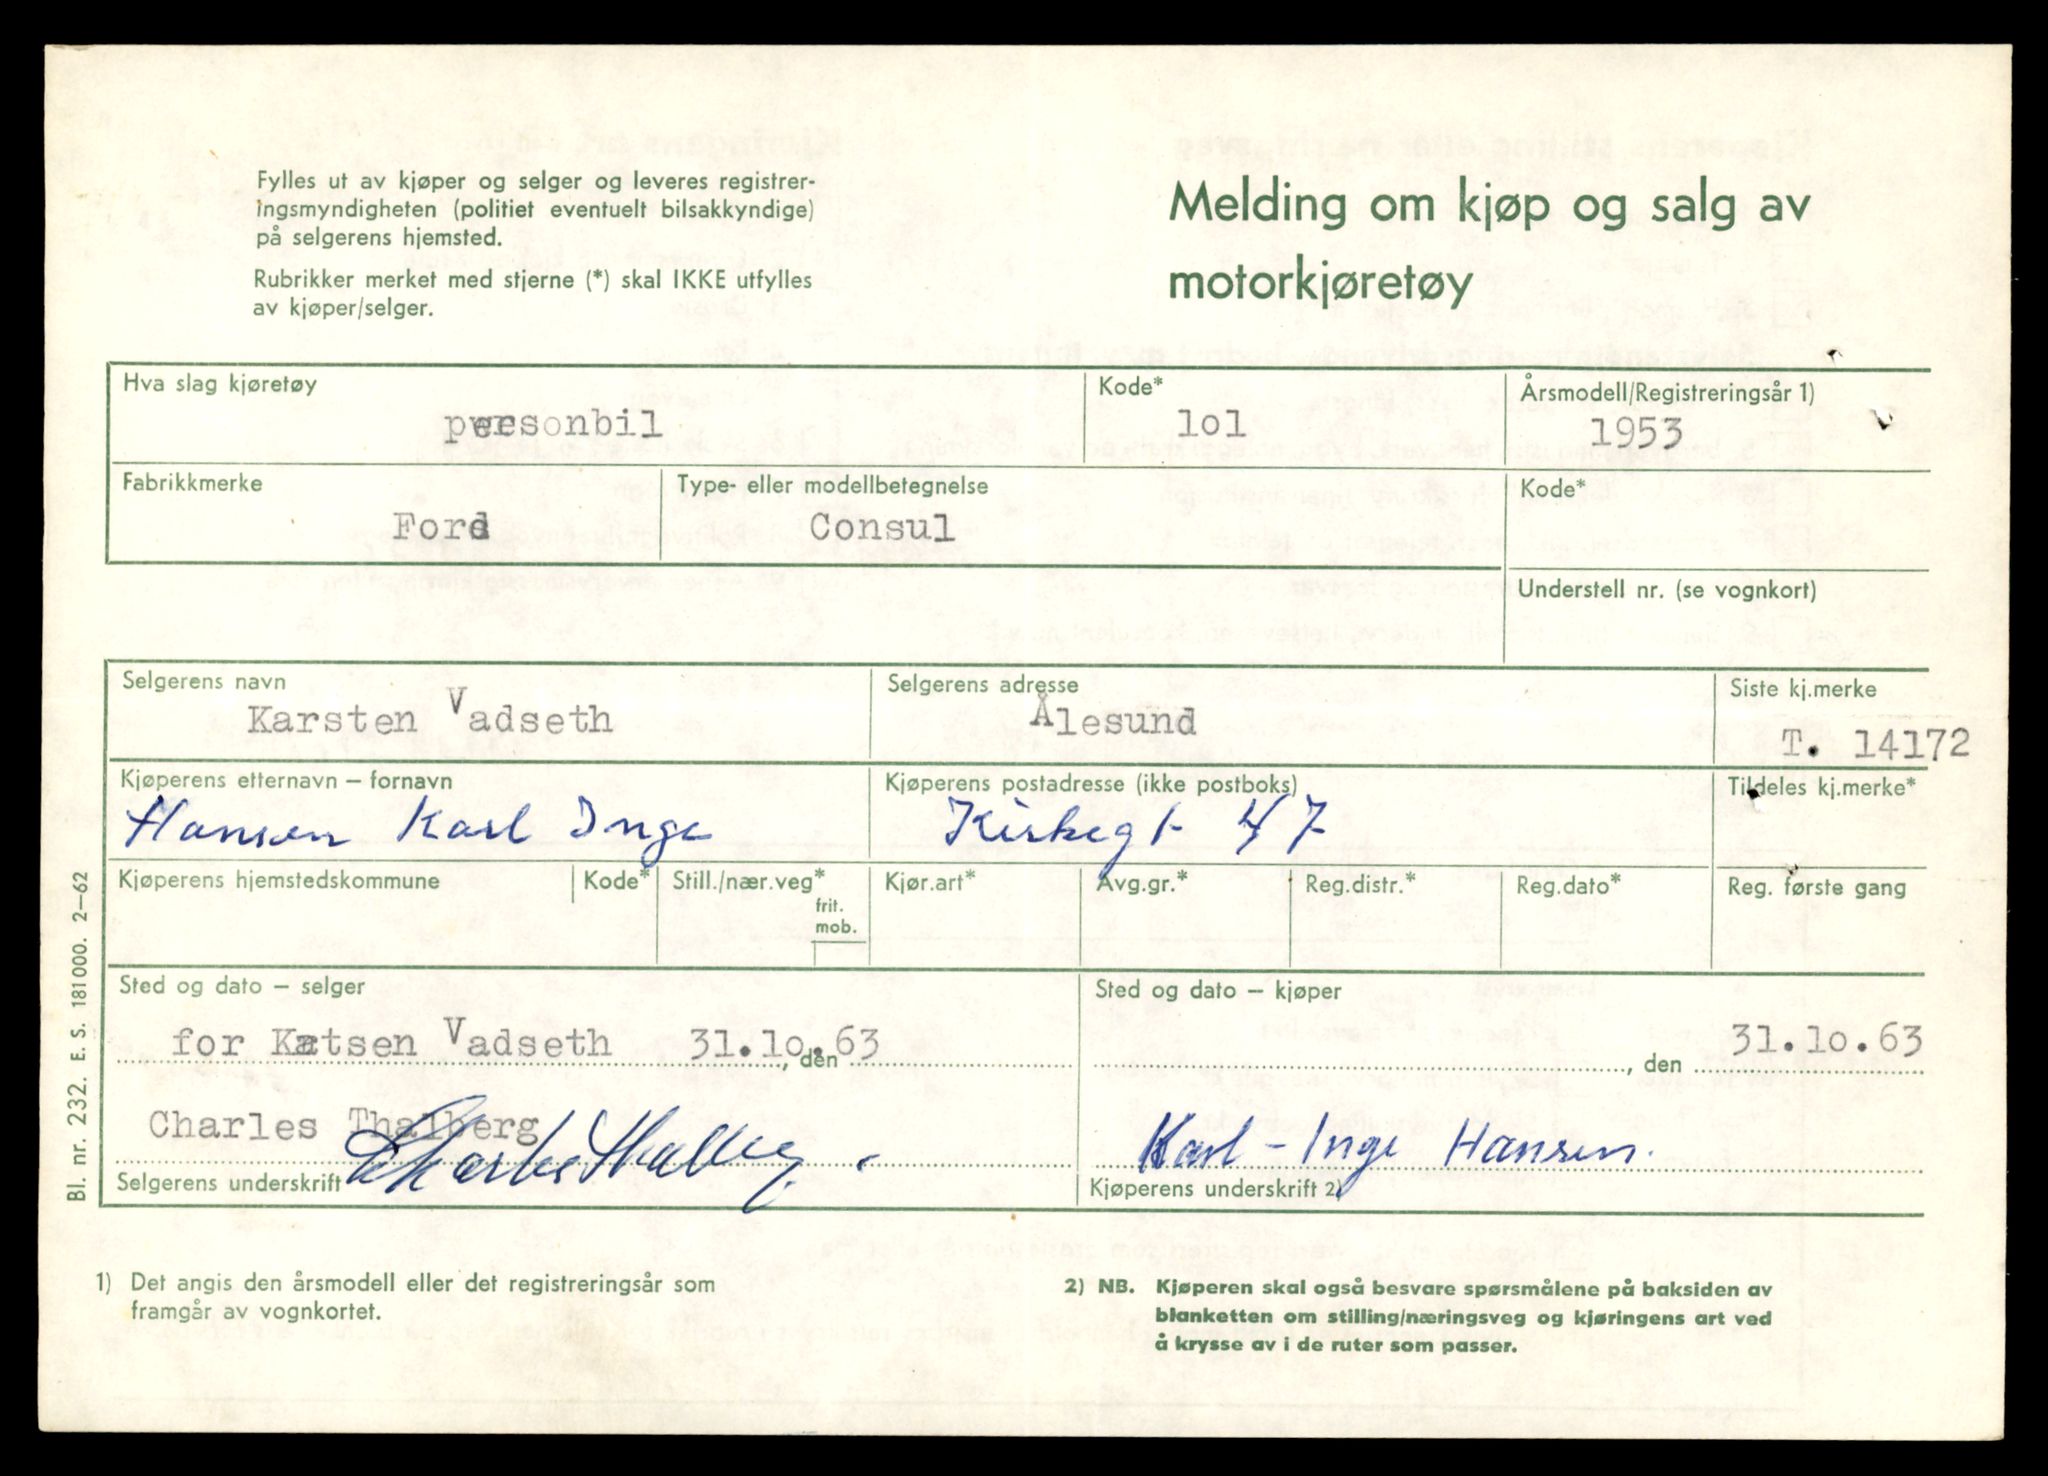 Fylles ut av kjøper og selger og leveres registrer-
ingsmyndigheten (politiet eventuelt bilsakkyndige)
på selgerens hjemsted.
Rubrikker merket med stjerne (*) skal IKKE utfylles
av kjøper/selger.
Melding om kjøp og salg av
motorkjøretøy
Hva slag kjøretøy
personbil
Kode*
lol
Årsmodell/Registreringsår 1)
1953
Fabrikkmerke
Ford
Type- eller modellbetegnelse
Consul
Kode*
Understell nr. (se vognkort)
Selgerens navn
Karsten Vadseth
Selgerens adresse
Ålesund
Siste kj.merke
T. 14172
Kjøperens etternavn – fornavn
Hansen Karl Inge
Kjøperens postadresse (ikke postboks)
Kirkegt 47
Tildeles kj.merke*
Kjøperens hjemstedskommune
Kode*
Still./nær.veg*
frit.
mob.
Kjør.art*
Avg.gr.*
Reg.distr.*
Reg.dato*
Reg. første gang
Sted og dato – selger
for Katsen Vadseth 31.lo.63
, den
Sted og dato – kjøper
, den 31.lo.63
Charles Thalberg
Charles Thalberg.
Selgerens underskrift
Karl-Inge Hansen.
Kjøperens underskrift 2)
Bl. nr. 232. E. S. 181000. 2–62
1) Det angis den årsmodell eller det registreringsår som
framgår av vognkortet.
2) NB. Kjøperen skal også besvare spørsmålene på baksiden av
blanketten om stilling/næringsveg og kjøringens art ved
å krysse av i de ruter som passer.